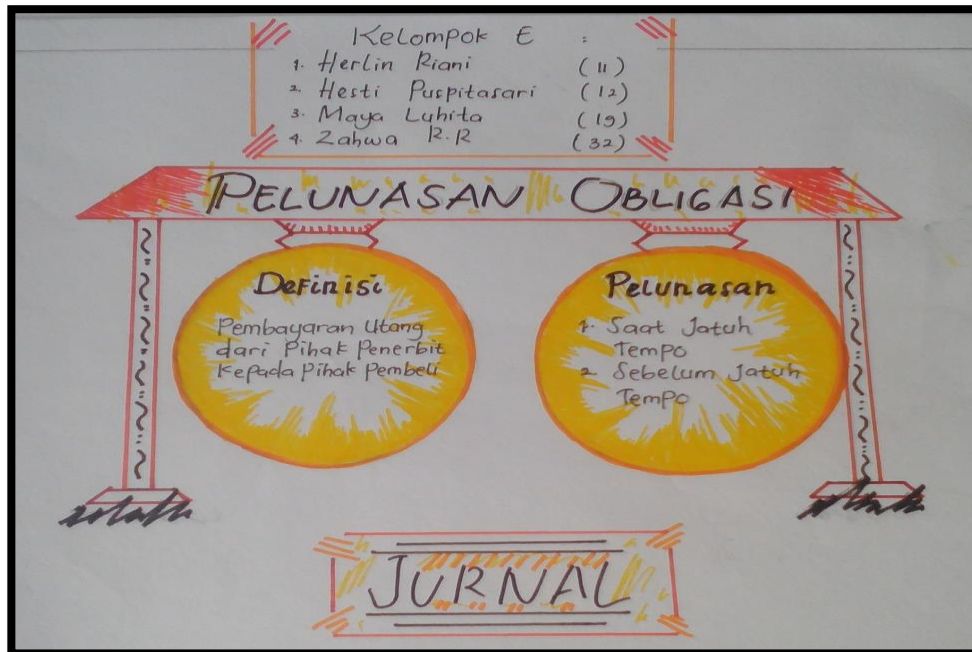 Kelompok E :
1. Herlin Riani (11)
2. Hesti Puspitasari (12)
3. Maya Luhita (19)
4. Zahwa R.R (32)
PELUNASAN OBLIGASI
Definisi
Pembayaran Utang
dari Pihak Penerbit
Kepada Pihak Pembeli
Pelunasan
1. Saat Jatuh
Tempo
2. Sebelum Jatuh
Tempo
JURNAL